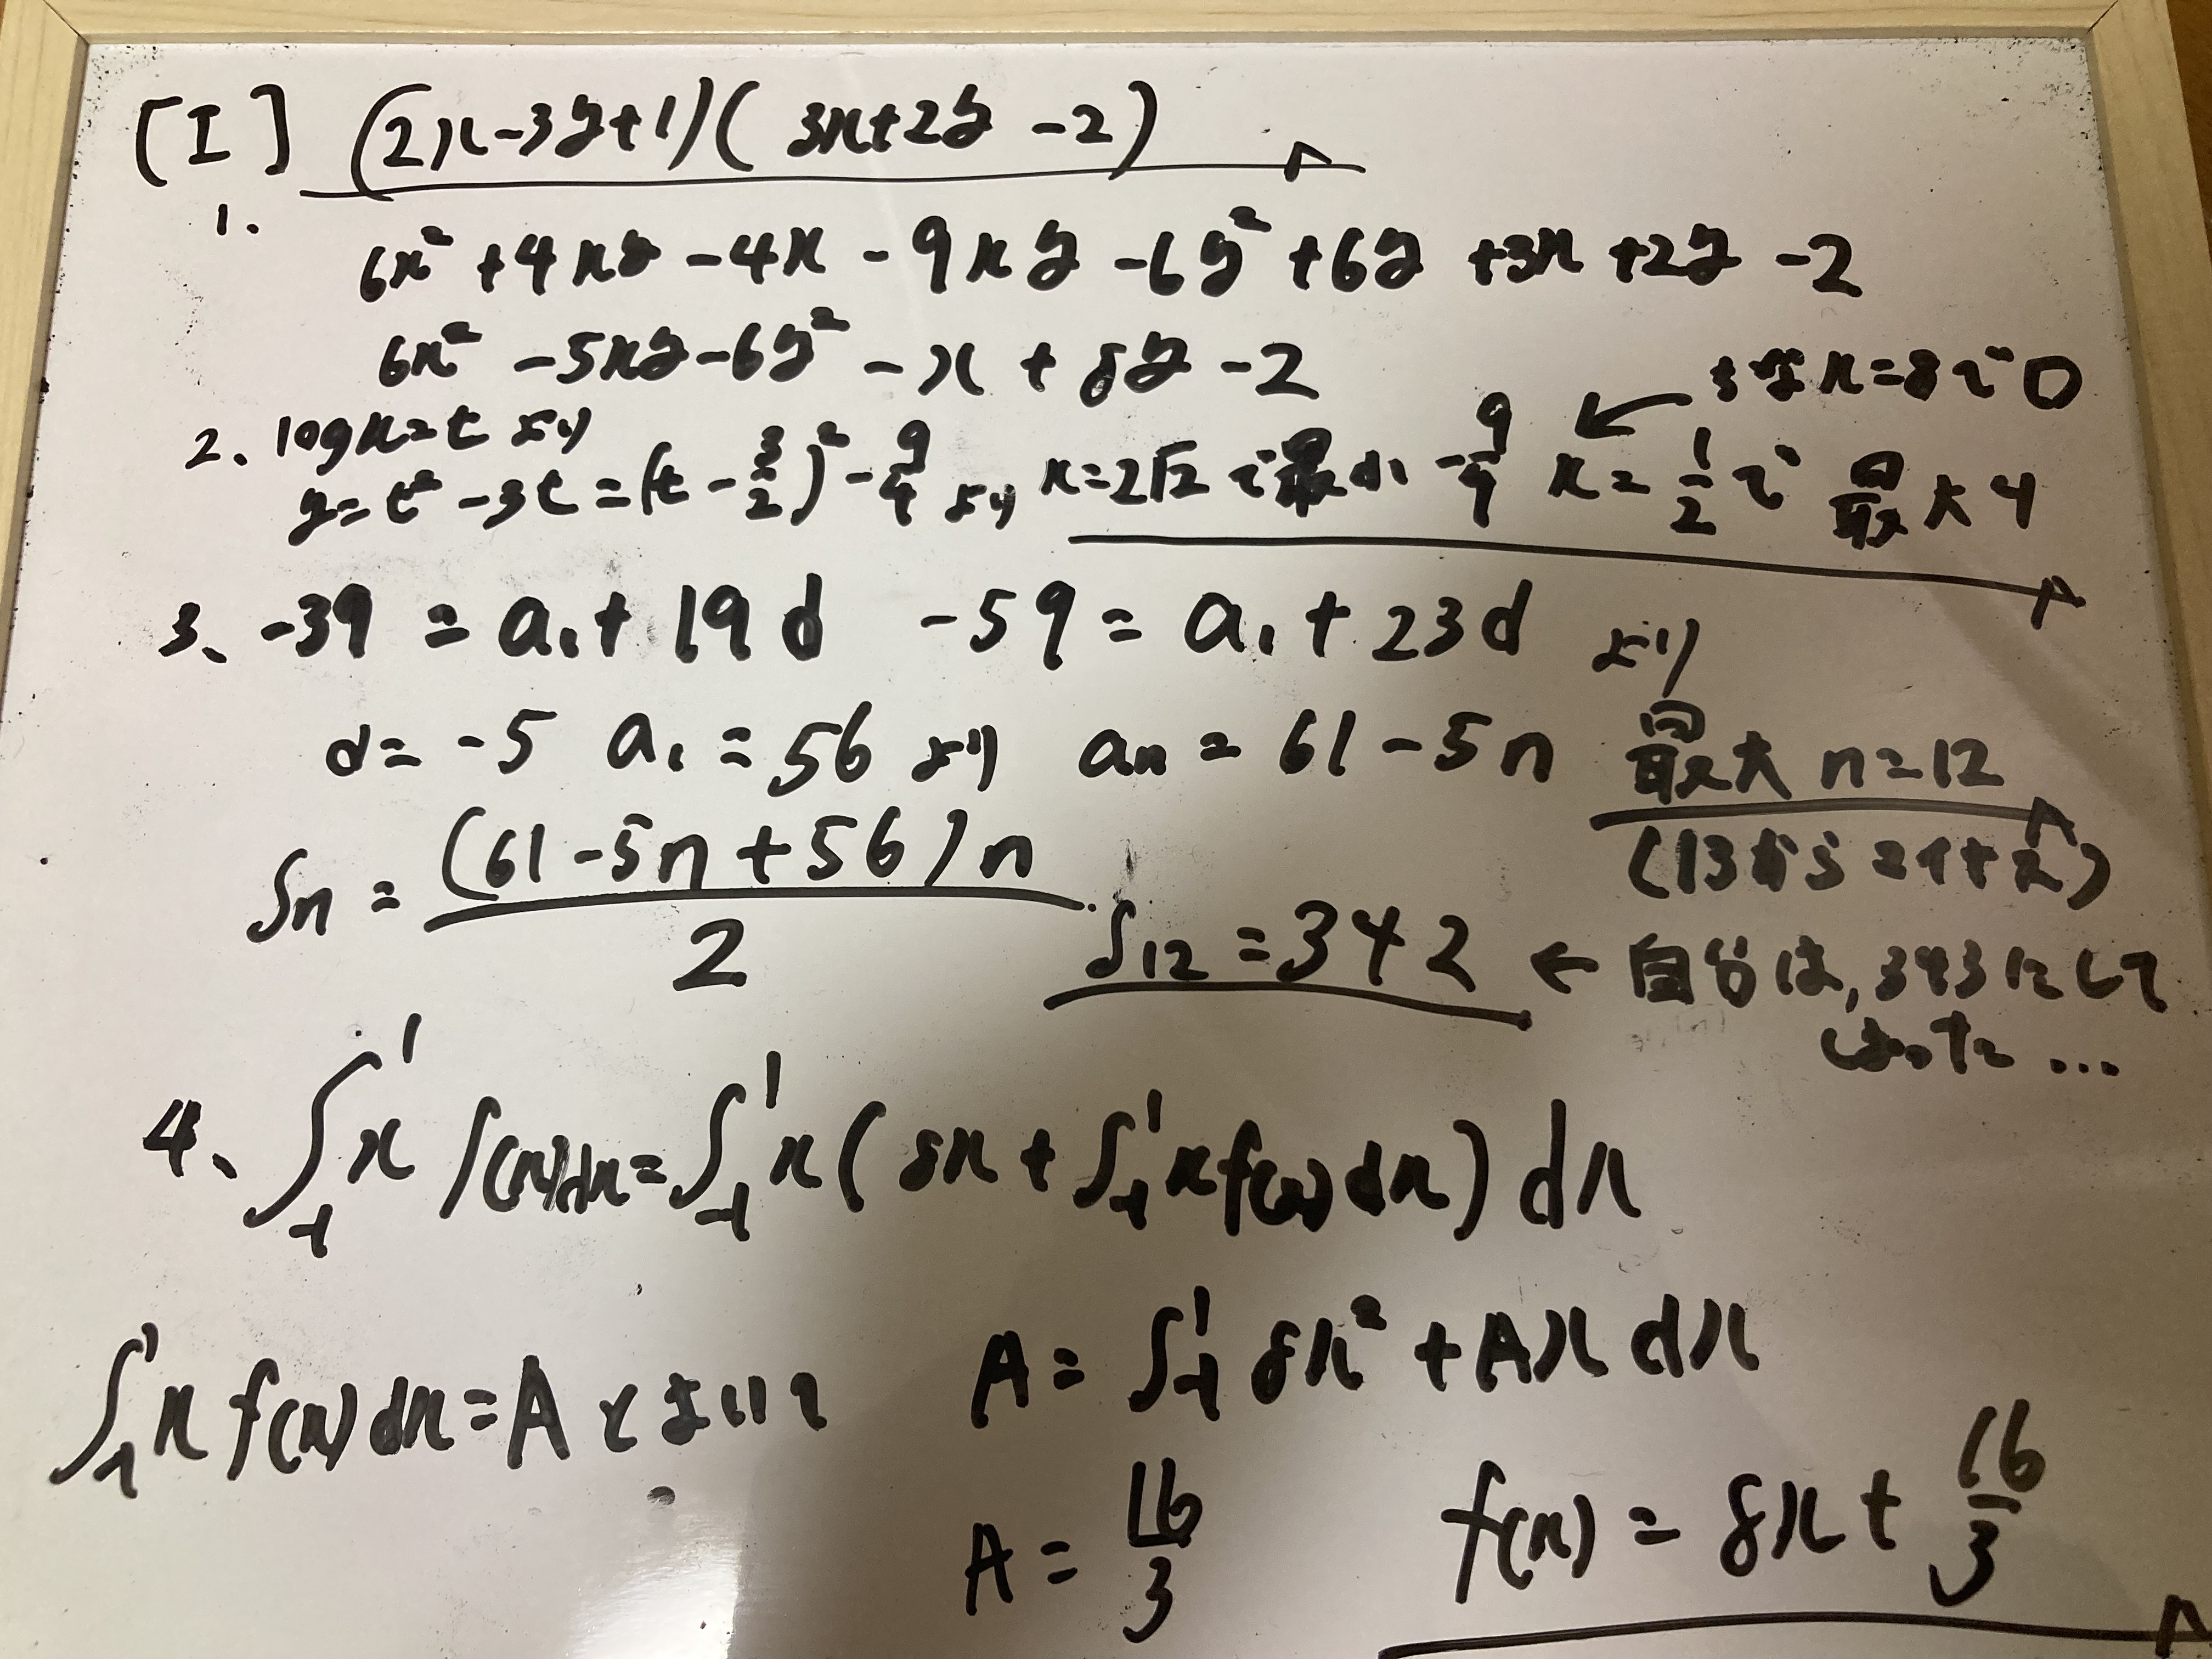 [I] (2x-3y+1)(3x+2y-2)
1.
6x²+4xy-4x-9xy-6y²+6y+3x+2y-2
6x²-5xy-6y²-x+8y-2
ちなx=8で0
2. logx=tより
y=t²-3t=(t-3/2)²-9/4より x=2√2で最小-9/4 x=1/2で最大4
3、-39=a₁+19d -59=a₁+23d より
d=-5 a₁=56より an=61-5n 最大n=12
(13からマイナス)
Sn=(61-5n+56)n/2
S12=342←自分は,343にして
しまった…
4、∫₋₁¹x f(x)dx=∫₋₁¹x(8x+∫₋₁¹xf(x)dx)dx
∫₋₁¹x f(x)dx=Aとおいて A=∫₋₁¹8x²+Ax dx
A=16/3 f(x)=8x+16/3